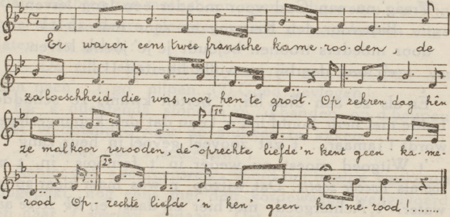 Er waren eens twee fransche kame-roo-den, de
zaloeschheid die was voor hen te groot. Op zekren dag hên
1e
ze malkoor verooden, de oprechte liefde 'n kent geen ka-me-
2e
rood Op-rechte liefde 'n ken' geen ka-me-rood!........